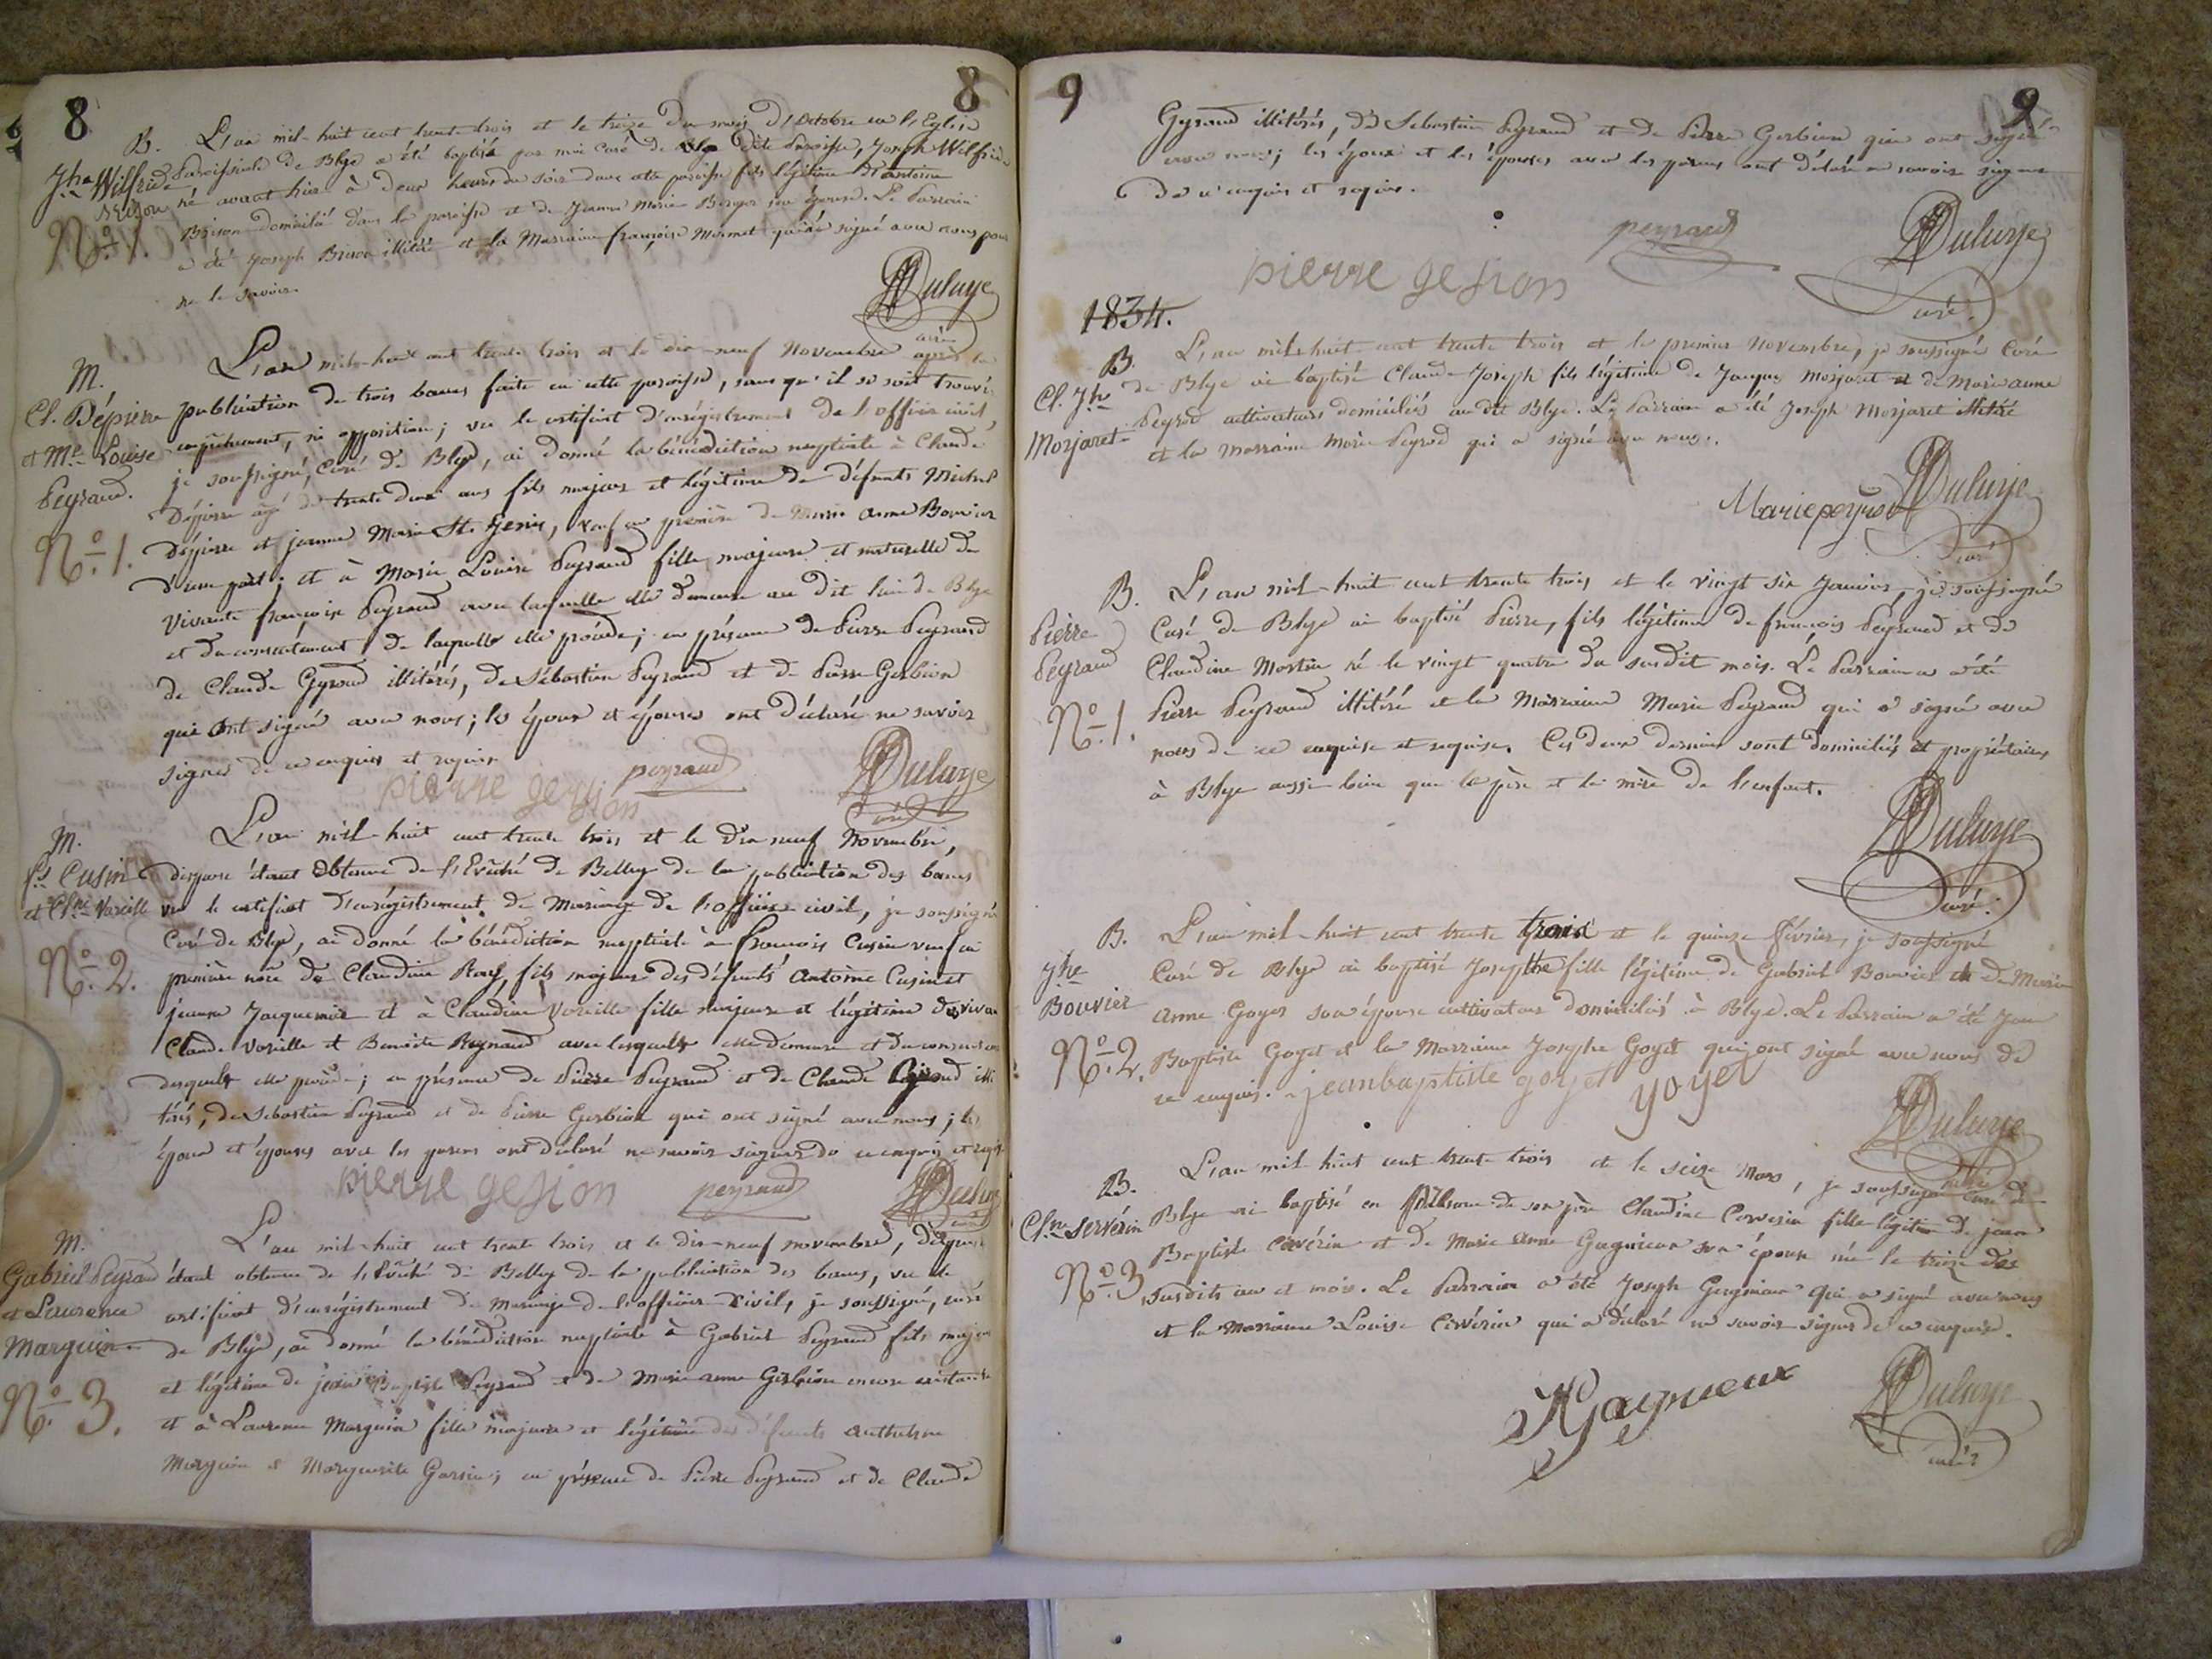 8
8
B. L'an mil-huit cent trente trois et le treize du mois d'octobre en l'Eglise
Jhe Wilfride Paroissiale de Blye a été baptisé par moi Curé de dite Paroisse, Joseph Wilfride
Brison né avant hier à deux heures du soir dans cette paroisse fils légitime d'antoine
N.o 1. Brison domicilié dans la paroisse et de Jeanne Marie Berger son épouse. Le Parrain
a été Joseph Brison illitéré et la Marraine françoise Mermet qui a signé avec nous pour
ne le savoir.
Duluye
curé
M.
Cl. Dépierre
et Me Louise
Peyraud.
N.o 1.
L'an mil-huit cent trente trois et le dix-neuf Novembre après la
publication de trois bancs faite en cette paroisse, sans qu'il se soit trouvé
empêchement, ni opposition; vu le certificat d'enrégistrement de l'officier civil,
je soussigné, Curé de Blye, ai donné la bénédiction nuptiale à Claude
Dépierre âgé de trente deux ans fils majeur et légitime de défunts Michel
Dépierre et jeanne Marie St. Genis, veuf en première de Marie Anne Bouvier
d'une part; et à Marie Louise Peyraud fille majeure et naturelle de
vivante françoise Peyraud avec laquelle elle demeure au dit lieu de Blye
et du consentement de laquelle elle procède; en présence de Pierre Peyraud
de Claude Gyraud illitérés, de Sébastien Peyraud et de Pierre Gerbion
qui ont signé avec nous; les époux et épouses ont déclaré ne savoir
signer de ce enquis et requis
pierre gersion peyraud Duluye
curé
M.
f.s Cusin
et Cl.ne Varielle
N.o 2.
L'an mil-huit cent trente trois et le dix neuf Novembre,
dispense étant obtenue de l'Evêché de Belley de la publication des bancs
vu le certificat d'enrégistrement de Mariage de l'officier civil, je soussigné
Curé de Blye, ai donné la bénédiction nuptiale à françois Cusin veuf en
première noce de Claudine Rey, fils majeur des défunts Antoine Cusin et
jeanne Jacquemier et à Claudine Varielle fille majeure et légitime des vivans
Claude Varielle et Benoite Reynaud avec lesquels elle demeure et du consentement
desquels elle procède; en présence de Pierre Peyraud et de Claude Gyraud illi
térés, de Sebastien Peyraud et de Pierre Gerbion qui ont signé avec nous; les
époux et épouses avec les parens ont déclaré ne savoir signer de ce enquis et requis
pierre gesion peyraud Duluye
curé
M.
Gabriel Peyraud
et Laurence
Marguin
N.o 3.
L'an mil-huit cent trente trois et le dix-neuf novembre, dispense
étant obtenue de l'Evêché de Belley de la publication des bancs, vu le
certificat d'enrégistrement de Mariage de l'officier civil, je soussigné, curé
de Blye, ai donné la bénédiction nuptiale à Gabriel Peyraud fils majeur
et légitime de jean Baptiste Peyraud et de Marie anne Gerbion encore existante
et à Laurence Marguin fille majeure et légitime des défunts anthelme
Marguin et Marguerite Garin; en présence de Pierre Peyraud et de Claude
9
9
Gyraud illitérés, de Sebastien Peyraud et de Pierre Gerbion qui ont signé
avec nous; les époux et les épouses avec les parens ont déclaré ne savoir signer
de ce enquis et requis.
pierre gesion peyraud Duluye
curé.
1834.
B.
Cl. Jh
Morjaret
L'an mil-huit cent trente trois et le premier Novembre, je soussigné Curé
de Blye ai baptisé Claude Joseph fils légitime de Jacques Morjaret et de Marie anne
Peyrod cultivateurs domiciliés au dit Blye. Le Parrain a été Joseph Morjaret illitéré
et la marraine Marie Peyrod qui a signé avec nous.
Marie peyrod Duluye
curé
B.
Pierre
Peyraud
N.o 1.
L'an mil-huit cent trente trois et le vingt six Janvier, je soussigné
Curé de Blye ai baptisé Pierre, fils légitime de françois Peyraud et de
Claudine Martin né le vingt quatre du susdit mois. Le Parrain a été
Pierre Peyraud illitéré et la Marraine Marie Peyraud qui a signé avec
nous de ce enquise et requise. Ces deux derniers sont domiciliés et propriétaires
à Blye aussi bien que le père et la mère de l'enfant.
Duluye
curé.
B.
Jhe
Bouvier
N.o 2.
L'an mil-huit cent trente trois et le quinze février, je soussigné
Curé de Blye ai baptisé Josephe fille légitime de Gabriel Bouvier et de Marie
Anne Goyet son épouse cultivateurs domiciliés à Blye. Le Parrain a été Jean
Baptiste Goyet et la Marraine Josephe Goyet qui ont signé avec nous de
ce enquis. jeanbaptiste goyet goyet
Duluye
curé
B.
Cl.ne Servérin
N.o 3.
L'an mil huit cent trente trois et le seize Mars, je soussigné Curé de
Blye ai baptisé en présence de son père Claudine Cervérin fille légitime de jean
Baptiste Cervérin et de Marie Anne Gagnieux son épouse née le treize des
susdits an et mois. Le Parrain a été Joseph Gagnieux qui a signé avec nous
et la Marraine Louise Cervérin qui a déclaré ne savoir signer de ce enquise.
JGagnieux Duluye
curé